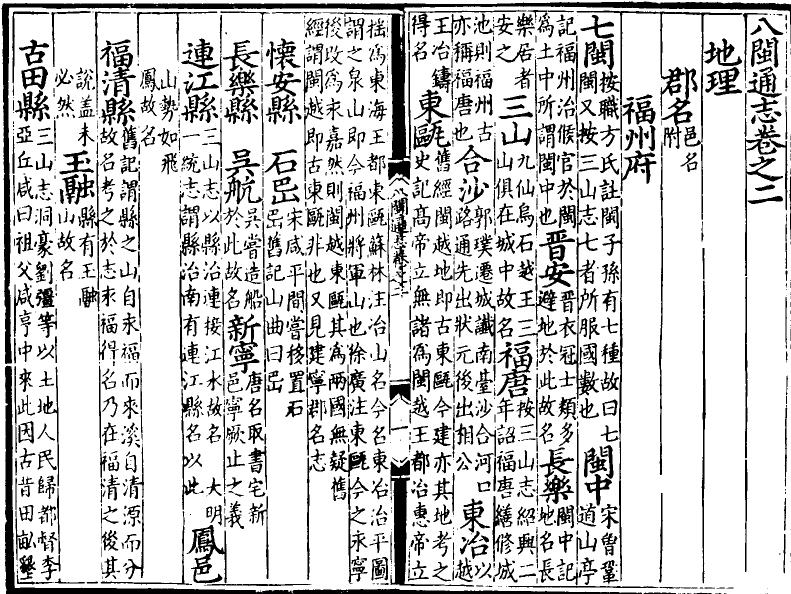 八閩通志卷之二
地理
郡名邑名附
福州府
七閩按職方氏註閩子孫有七種故曰七
閩又按三山志七者所服國數也閩中宋曾鞏道山亭
記福州治候官於閩
為土中所謂閩中也晋安晋衣冠士類多
避地於此故名長樂閩中記
地名長
樂居者
安之三山九仙烏石越王三
山俱在城中故名福唐按三山志紹興二
年詔福唐繕修城
池則福州古
亦稱福唐也合沙郭璞遷城讖南臺沙合河口
路通先出狀元後出相公東冶以
越
王冶鑄
得名東甌舊經閩越地即古東甌今建亦其地考之
史記髙帝立無諸為閩越王都冶惠帝立
揺為東海王都東甌蘇林注冶山名今名東冶冶平圖
謂之泉山即今福州將軍山也徐廣注東甌今之永寧
後改為永嘉然則閩越東甌其為兩國無疑舊
經謂閩越即古東甌非也又見建寧郡名志
懷安縣石岊宋咸平間嘗移置石
岊舊記山曲曰岊
長樂縣吳航吳嘗造船
於此故名新寧唐名取書宅新
邑寧厥止之義
連江縣三山志以縣治連接江水故名大明
一統志謂縣治南有連江縣名以此鳳邑
山勢如飛
鳳故名
福清縣舊記謂縣之山自永福而來溪自清源而分
故名考之於志永福得名乃在福清之後其
說盖未
必然玉融縣有玉融
山故名
古田縣三山志洞豪劉彊等以土地人民歸都督李
亞丘咸曰祖父咸亨中來此因古昔田畝墾
八閩通志卷之二
一